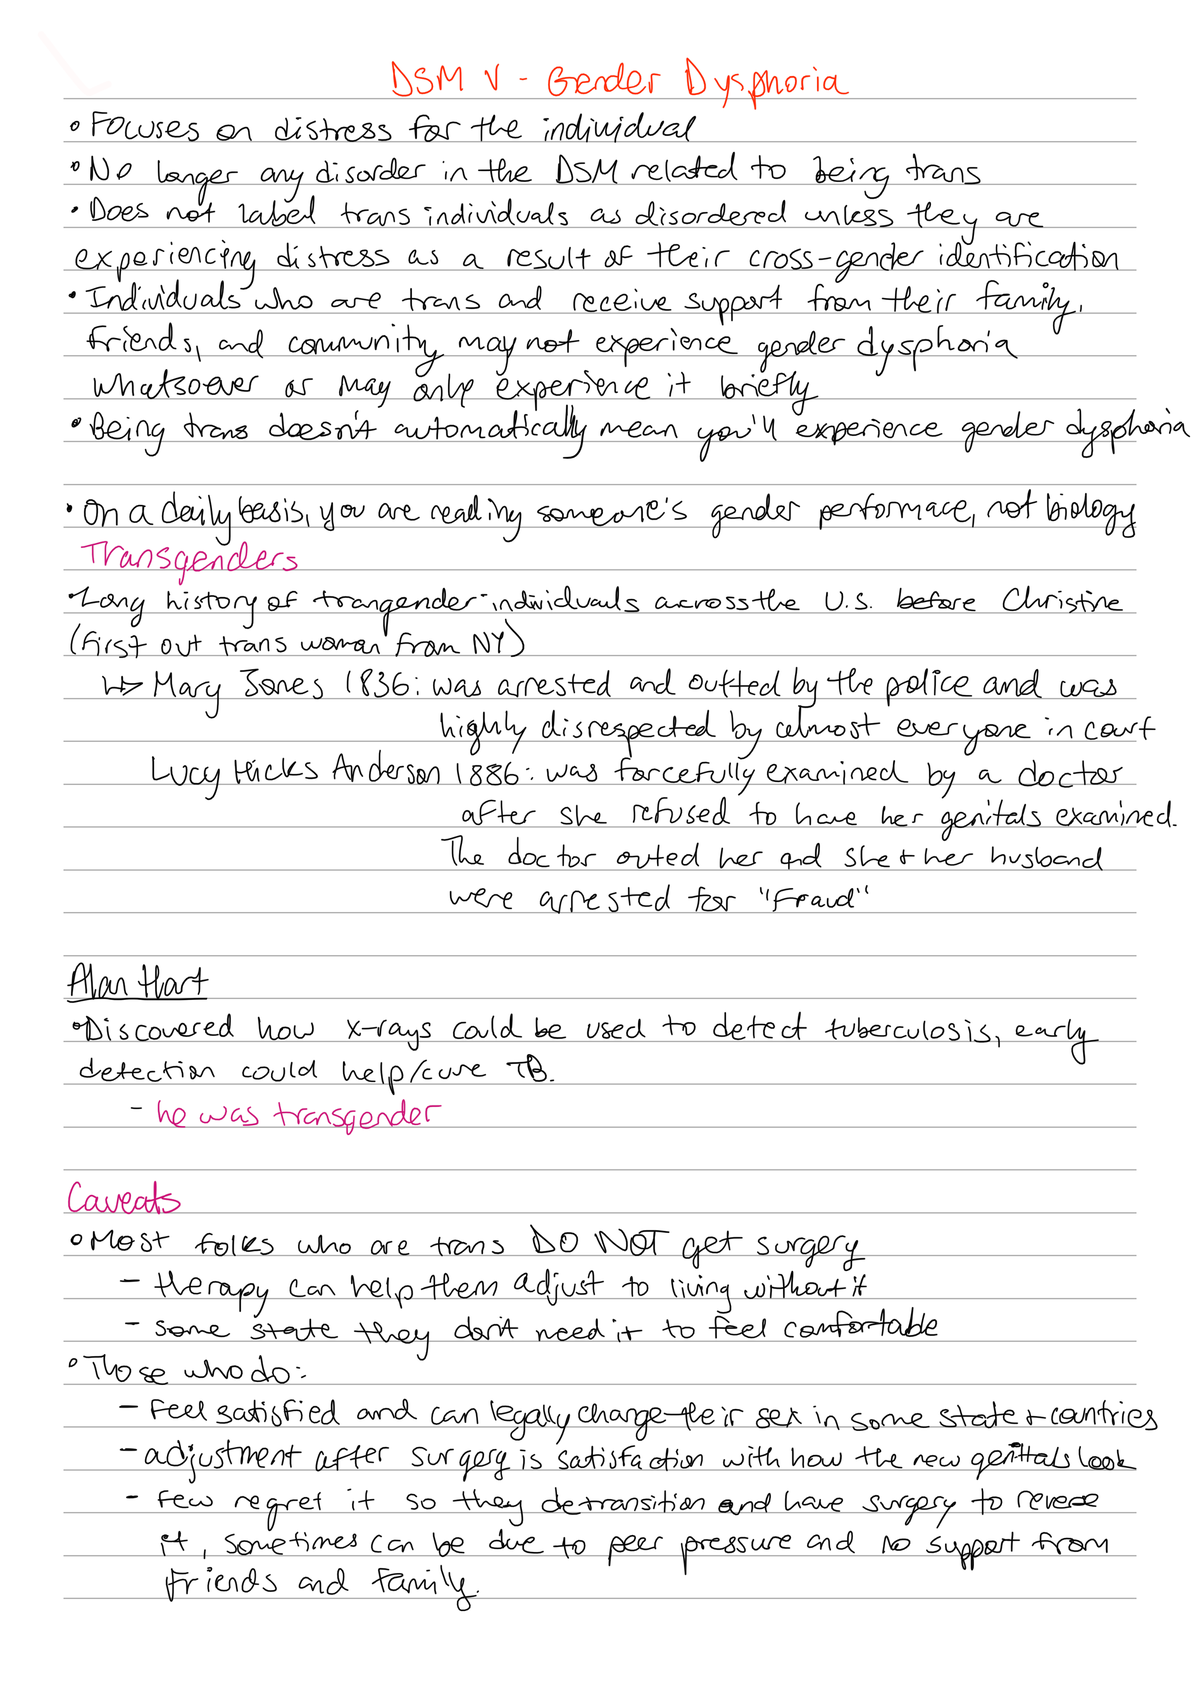 DSM V - Gender Dysphoria
• Focuses on distress for the individual
• No longer any disorder in the DSM related to being trans
• Does not label trans individuals as disordered unless they are
experiencing distress as a result of their cross-gender identification
• Individuals who are trans and receive support from their family,
friends, and community may not experience gender dysphoria
whatsoever or may only experience it briefly
• Being trans doesn't automatically mean you'll experience gender dysphoria
• On a daily basis, you are reading someone's gender performace, not biology
Transgenders
• Long history of trangender individuals across the U.S. before Christine
(first out trans woman from NY)
↳ Mary Jones 1836: was arrested and outted by the police and was
highly disrespected by almost everyone in court
Lucy Hicks Anderson 1886: was forcefully examined by a doctor
after she refused to have her genitals examined.
The doctor outed her and she + her husband
were arrested for "Fraud"
Alan Hart
• Discovered how x-rays could be used to detect tuberculosis, early
detection could help/cure TB.
- he was transgender
Caveats
• Most folks who are trans DO NOT get surgery
- therapy can help them adjust to living without it
- some state they don't need it to feel comfortable
• Those who do:
- feel satisfied and can legally change their sex in some state + countries
- adjustment after surgery is satisfaction with how the new genitals look
- few regret it so they detransition and have surgery to revese
it, sometimes can be due to peer pressure and no support from
friends and family.